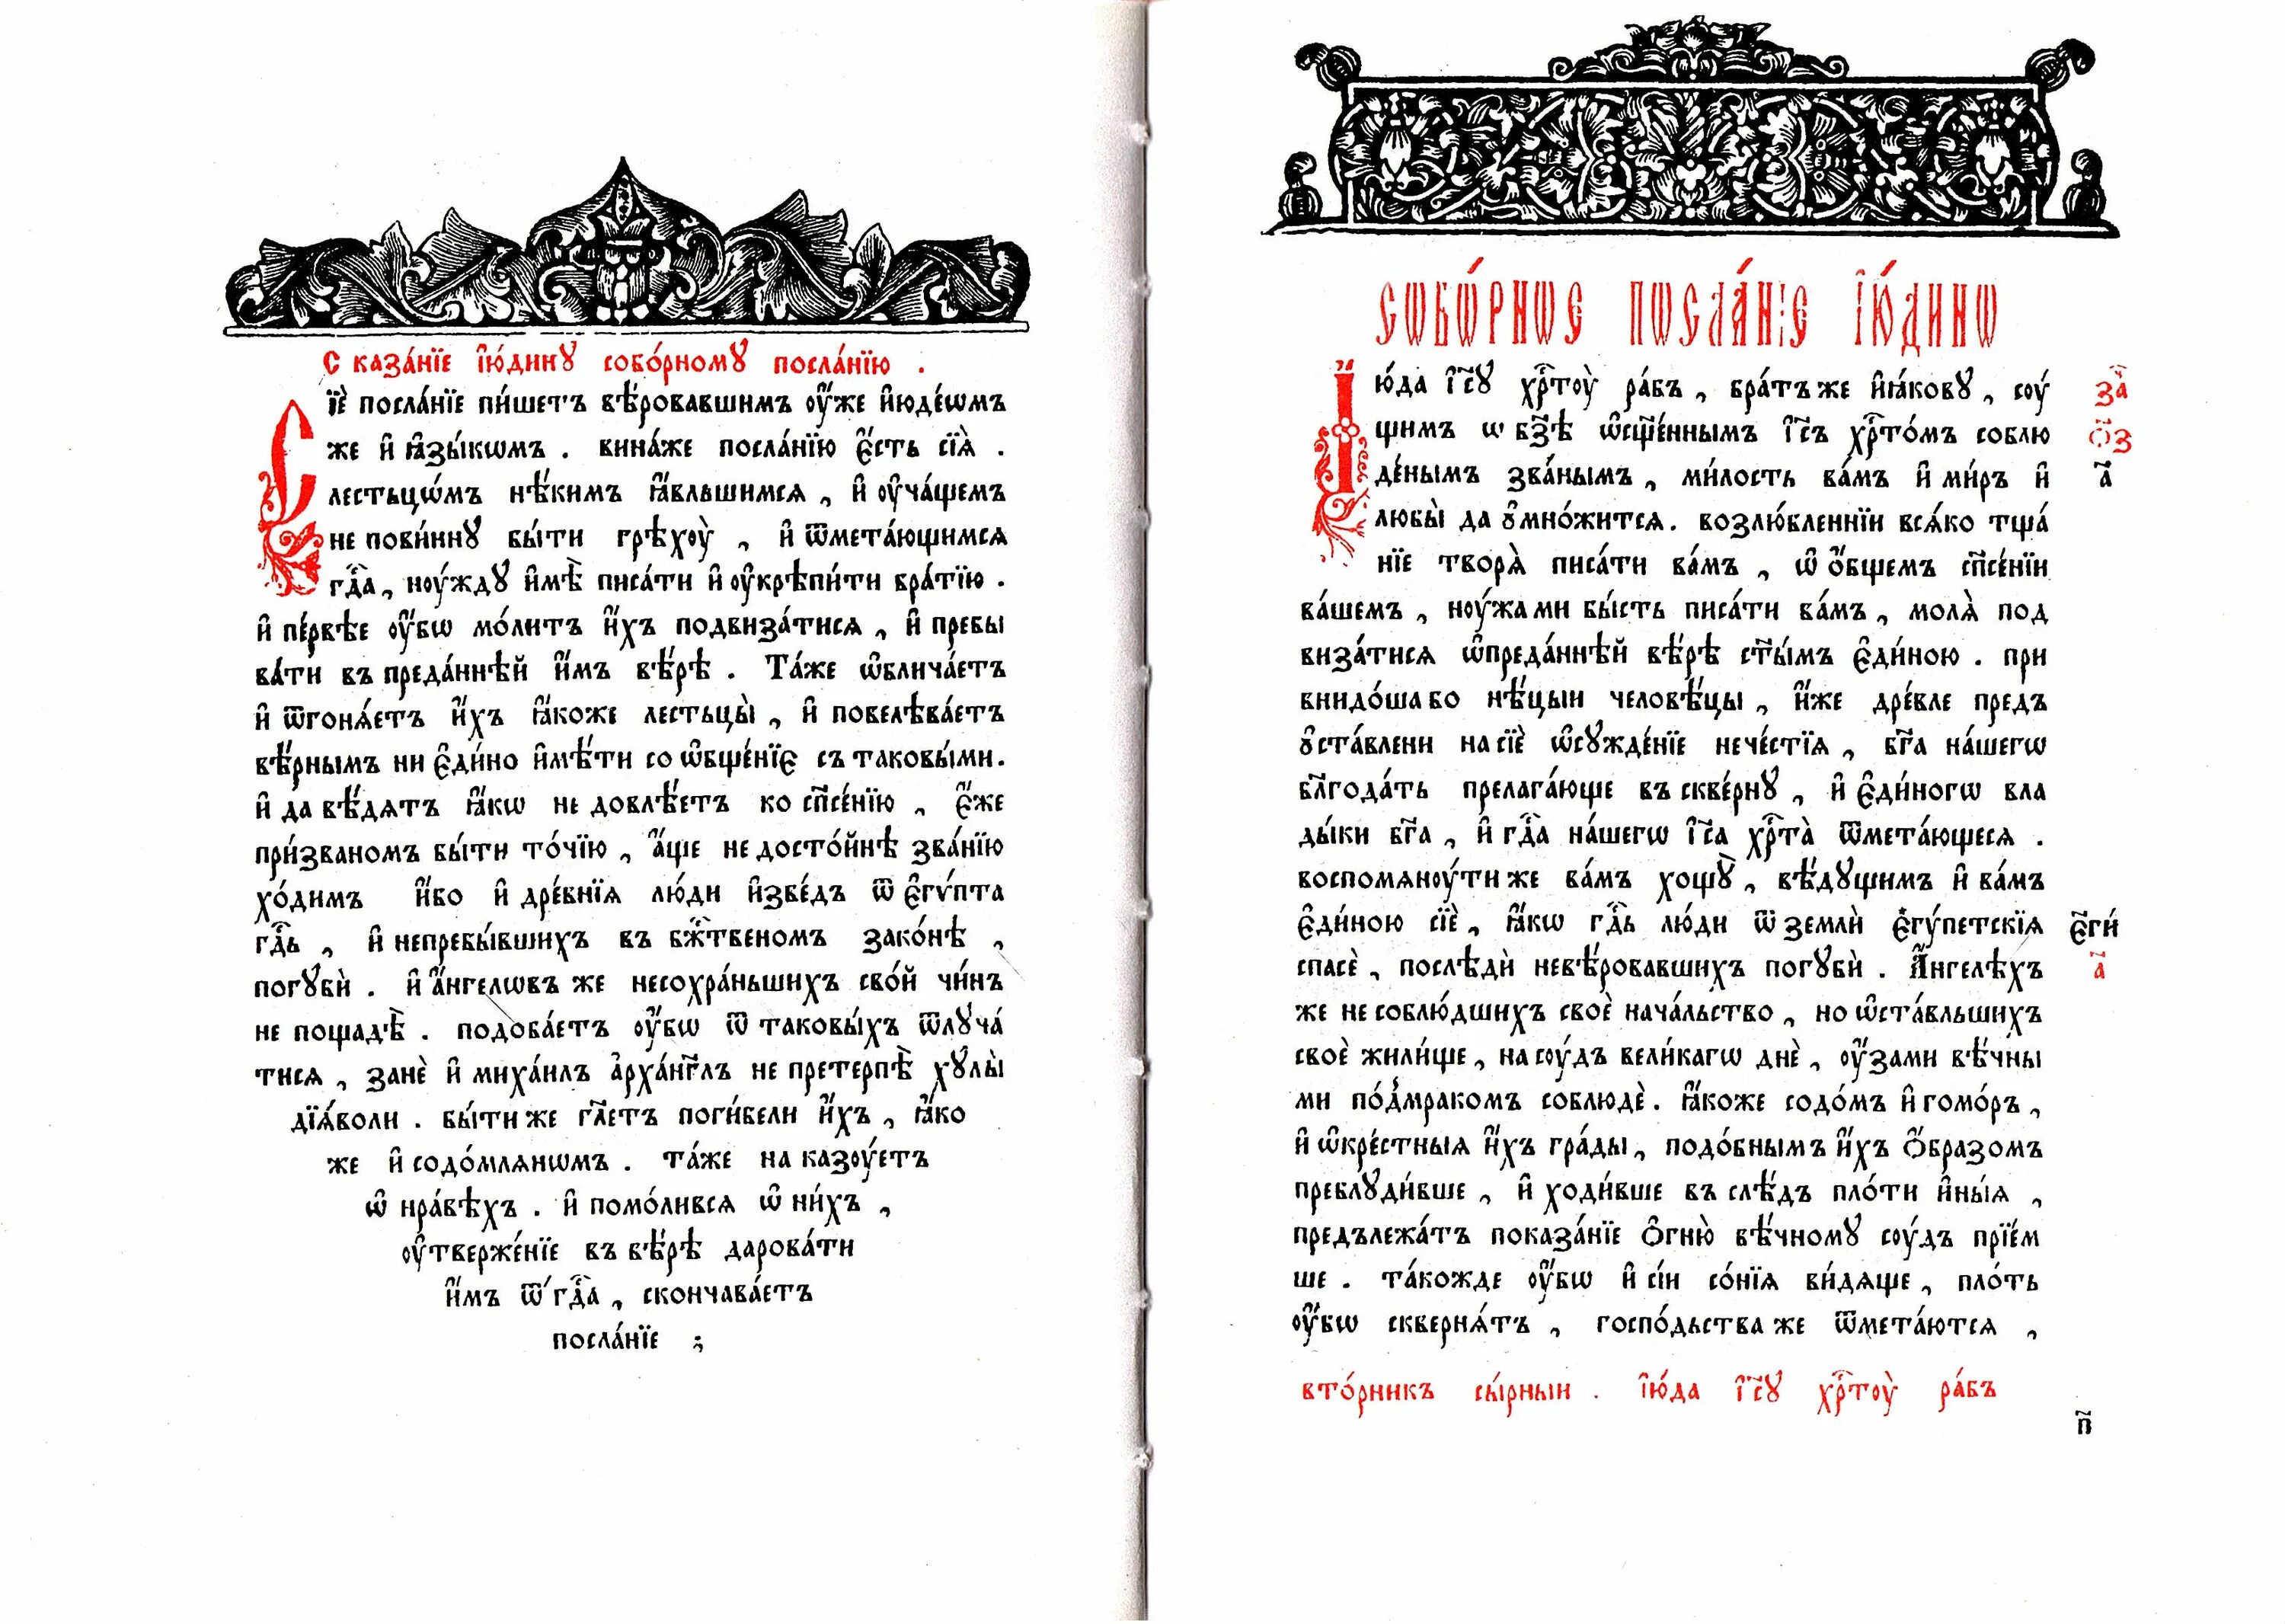 Сказа́нїе і҆ю́динꙋ собо́рномꙋ посла́нїю .
Сїѐ посла́нїе пи́шетъ вѣ́ровавшимъ оу҆́же и҆юде́ѡмъ
же и҆ ꙗ҆зы́кѡмъ . вина́же посла́нїю є҆́сть сїѧ̀ .
лестьцѡ́мъ нѣ́кимъ ꙗ҆́вльшимсѧ , и҆ оу҆ча́щемъ
не пови́ннꙋ бы́ти грѣхоу̀ , и҆ ѿмета́ющимсѧ
гдⷭ҇а , ноу́ждꙋ и҆мѣ̀ писа́ти и҆ оу҆крѣпи́ти бра́тїю .
и҆ пе́рвѣе оу҆́бѡ мо́литъ и҆́хъ подвиза́тисѧ , и҆ пребы
ва́ти въ преда́ннѣй и҆́мъ вѣ́рѣ . Та́же ѡ҆блича́етъ
и҆ ѿгонѧ́етъ и҆́хъ ꙗ҆́коже лестьцы̀ , и҆ повелѣва́етъ
вѣ́рнымъ ни є҆ди́но и҆мѣ́ти со ѡ҆бще́нїе съ таковы́ми .
и҆ да вѣ́дѧтъ ꙗ҆́кѡ не довлѣ́етъ ко сп҃се́нїю , є҆́же
при́званомъ бы́ти то́чїю , а҆́ще не досто́йнѣ зва́нїю
хо́димъ и҆́бо и҆ дре́внїѧ лю́ди и҆зве́дъ ѿ є҆гѵ́пта
гдⷭ҇ь , и҆ непребы́вшихъ въ бжⷭ҇твеномъ зако́нѣ ,
погꙋбѝ . и҆ а҆́нгелѡвъ же несохра́ньшихъ сво́й чи́нъ
не пощадѣ̀ . подоба́етъ оу҆́бѡ ѿ таковы́хъ ѿлꙋча́
тисѧ , занѐ и҆ миха́илъ а҆рха́нг҃лъ не претерпѣ̀ хꙋлы̀
дїѧ́воли . бы́ти же гл҃етъ поги́бели и҆́хъ , ꙗ҆́ко
же и҆ содо́млѧнѡмъ . та́же на казоу́етъ
ѡ҆ нра́вѣхъ . и҆ помо́ливсѧ ѡ҆ ни́хъ ,
оу҆тверже́нїе въ вѣ́рѣ дарова́ти
и҆́мъ ѿ гдⷭ҇а , сконча́ваетъ
посла́нїе ;
Сѡбѡ́рнѡе пѡсла́нїе і҆ю́динѡ
І҆ю́да і҆с҃ꙋ хрⷭ҇тоу̀ ра́бъ , бра́тъ же и҆ꙗ́ковꙋ , соу́ за҇
щимъ ѡ бз҃ѣ ѡ҆сщ҃е́ннымъ і҆с҃ъ хрⷭ҇то́мъ соблю о҃з
де́нымъ зва́нымъ , ми́лость ва́мъ и҆ ми́ръ и҆ а҃
любы̀ да ᲂу҆мно́житсѧ . возлю́бленнїи всѧ́ко тща́
нїе творѧ̀ писа́ти ва́мъ , ѡ҆ ѻ҆́бщемъ сп҃се́нїи
ва́шемъ , ноу́жа ми бы́сть писа́ти ва́мъ , молѧ̀ под
виза́тисѧ ѡ҆преда́ннѣй вѣ́рѣ ст҃ы́мъ є҆ди́ною . при
внидо́ша бо нѣ́цыи человѣ́цы , и҆́же дре́вле предъ
ꙋ҆ста́влени на сїѐ ѡ҆сꙋжде́нїе нече́стїѧ , бг҃а на́шегѡ
бл҃года́ть прелага́юще въ скве́рнꙋ , и҆ є҆ди́ногѡ вла
ды́ки бг҃а , и҆ гдⷭ҇а на́шегѡ і҆с҃а хрⷭ҇та̀ ѿмета́ющесѧ .
воспомѧноу́ти же ва́мъ хощꙋ̀ , вѣ́дꙋщимъ и҆ ва́мъ
є҆ди́ною сїѐ , ꙗ҆́кѡ гдⷭ҇ь лю́ди ѿ землѝ є҆гѵ́петскїѧ є҆ги́
спасѐ , послѣдѝ невѣ́ровавшихъ погꙋбѝ . А҆́нгелѣхъ а҃
же не соблю́дшихъ своѐ нача́льство , но ѡ҆ста́вльшихъ
своѐ жили́ще , на соу́дъ вели́кагѡ днѐ , оу҆́зами вѣ́чны
ми по́дмракомъ соблюдѐ . ꙗ҆́коже содо́мъ и҆ гомо́ръ ,
и҆ ѡ҆кре́стныѧ и҆́хъ гра́ды , подо́бнымъ и҆́хъ ѻ҆́бразомъ
преблꙋди́вше , и҆ ходи́вше въ слѣ́дъ пло́ти и҆ны́ѧ ,
предълежа́тъ показа́нїе ѻ҆гню̀ вѣ́чномꙋ соу́дъ прїе́м
ше . та́кожде оу҆́бѡ и҆ сі́и со́нїѧ ви́дѧще , пло́ть
оу҆́бѡ сквернѧ́тъ , госпо́дьства же ѿмета́ютсѧ ,
вто́рникъ сы́рныи . і҆ю́да і҆с҃ꙋ хрⷭ҇тоу̀ ра́бъ
п҃